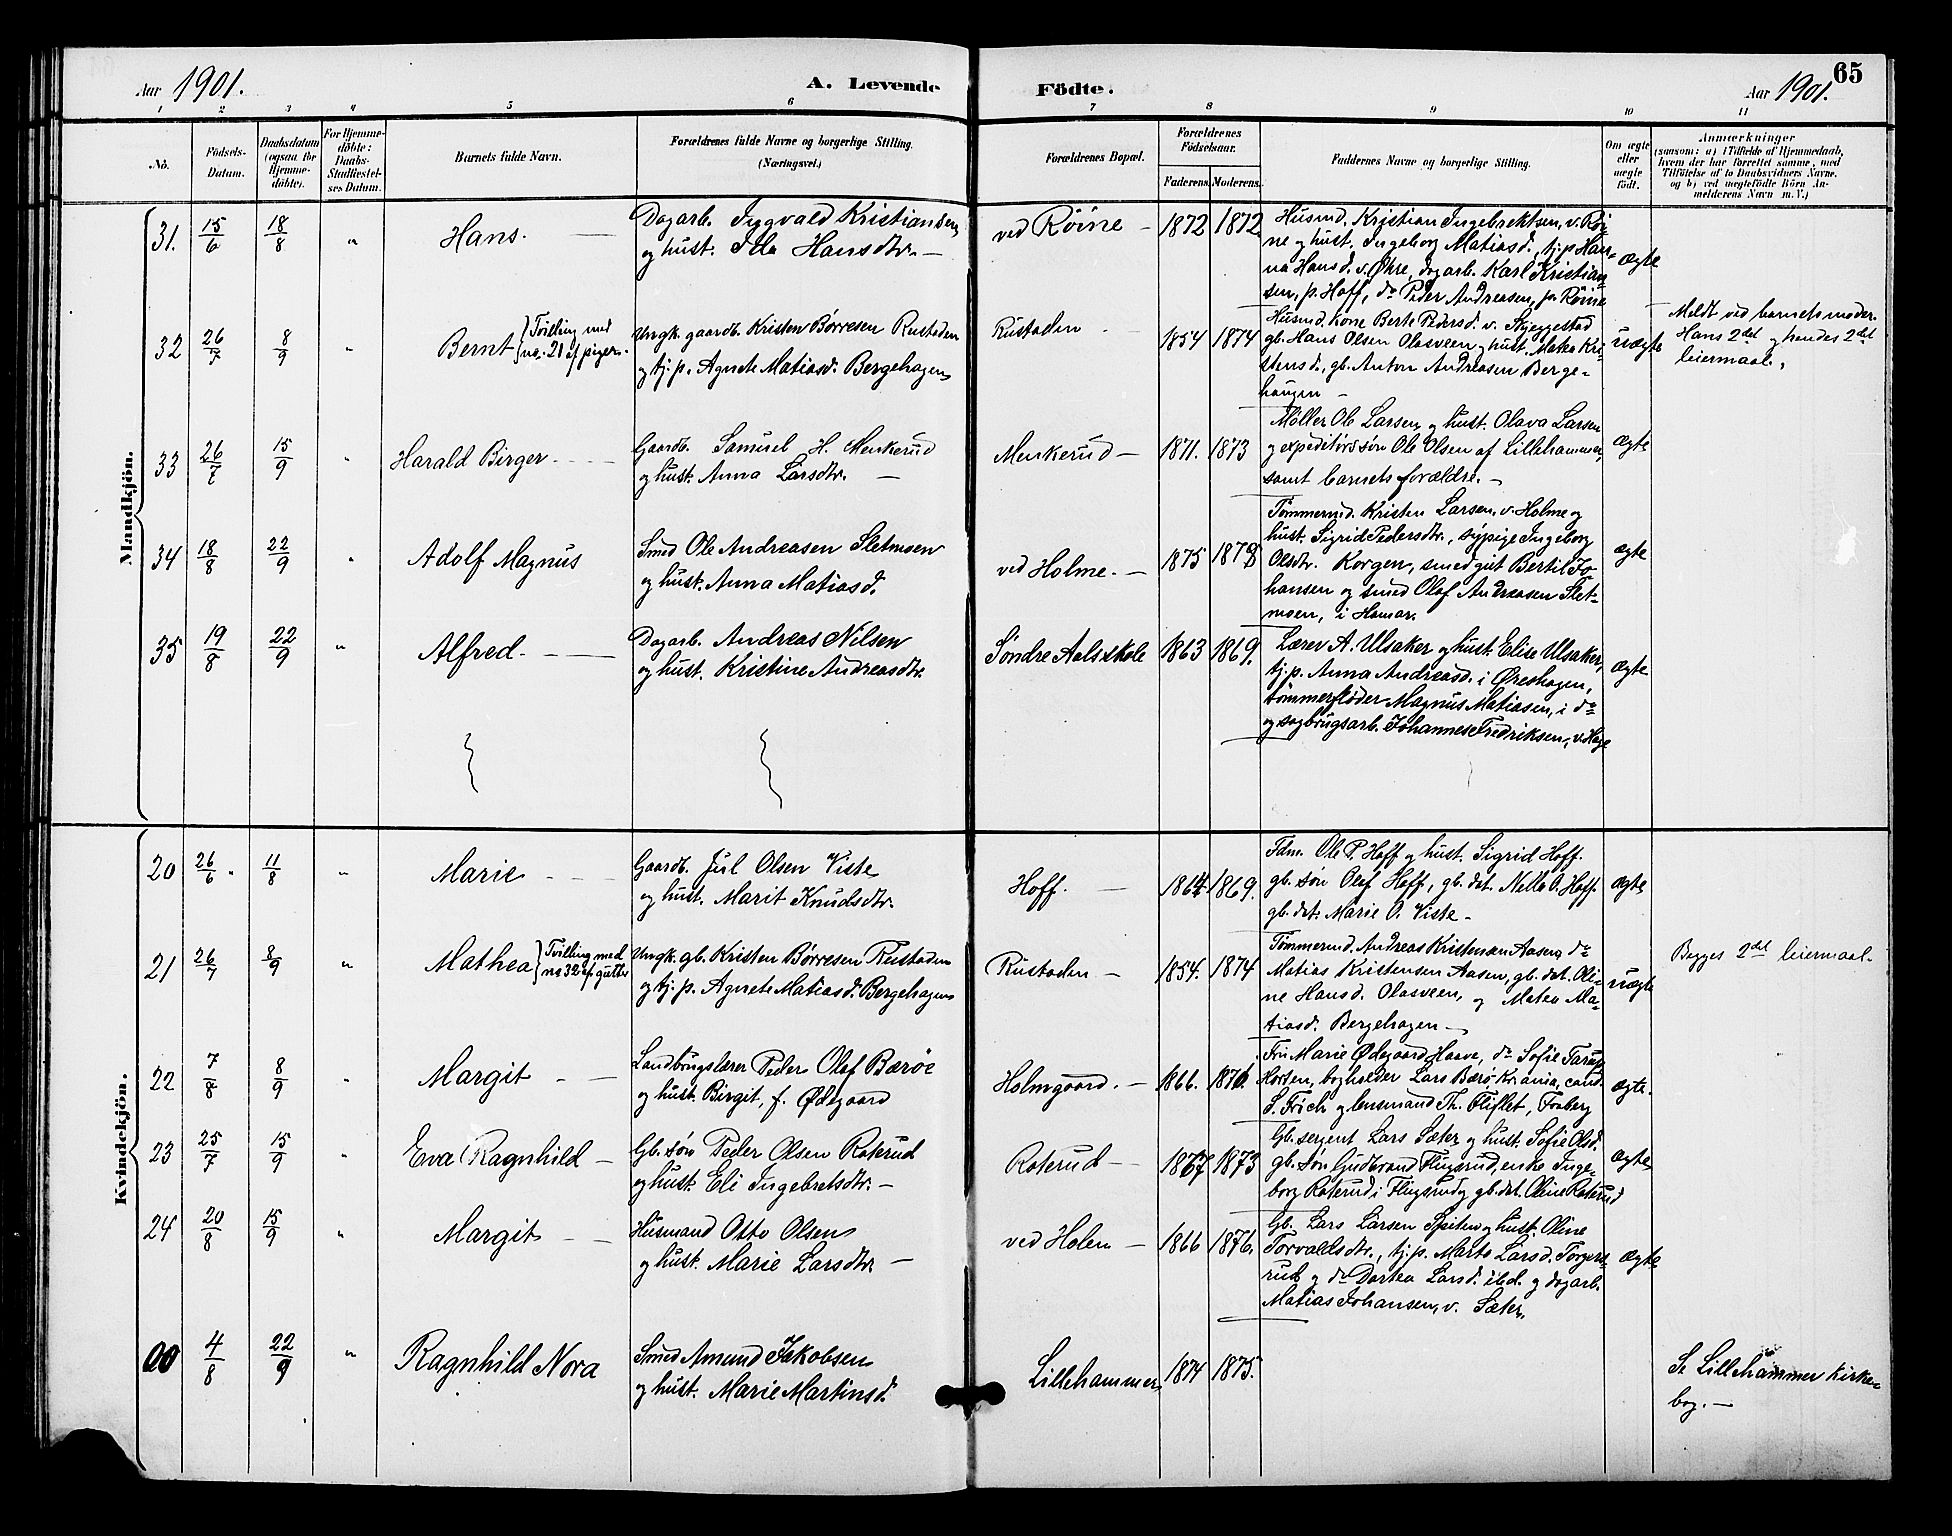 Aar 1901. A. Levende Födte. Aar 1901. 65
1 2 3 4 5 6 7 8 9 10 11
No. Födsels-Datum. Daabsdatum (ogsaa för Hjemme-döbte). For Hjemme-döbte: Daabs-Stadfæstel-ses Datum. Barnets fulde Navn. Forældrenes fulde Navne og borgerlige Stilling. (Næringsvei.) Forældrenes Bopæl. Forældrenes Födselsaar. Faderens. Moderens. Faddernes Navne og borgerlige Stilling. Om ægte eller uægte födt. Anmærkninger
(saasom: a) i Tilfælde af Hjemmedaab,
hvem der har forrettet samme, med
Tilföielse af to Daabsvidners Navne.
og b) ved uægtefödte Börn An-
melderens Navn m. V.)
Mandkjön.
31. 15/6 18/8 " Hans.
Dagarb. Ingvald Kristiansen
og hust. Ida Hansdtr. —
ved Røine — 1872 1872
Husmd. Kristian Ingebrektsen, v. Røi-
ne og hust. Ingeborg Matiasd., tj.p. Han-
na Hansd. v. Øhre, dagarb. Karl Kristian-
sen, p. Hoff, do Peder Andreasen, p. Røine
ægte
32 26/7 8/9 " Bernt {Tvilling med
no. 21 af piger.
Ungk. gaardb. Kristen Børresen Rustaden
og tj.p. Agnete Matiasd. Bergehagen
Rustaden — 1854 1874
Husmd. kone Berte Pedersd. v. Skjeggestad
gb. Hans Olsen Olasveen og hust. Matea Kri-
stensd., gb. Anton Andreasen Berge-
haugen —
uægte
Meldt ved barnets moder.
Hans 2det og hendes 2det
leiermaal.
33 26/7 15/9 " Harald Birger. —
Gaardb. Samuel H. Menkerud
og hust. Anna Larsdtr. —
Menkerud — 1871. 1873
Møller Ole Larsen og hust. Olava Larsen
og expeditørs søn Ole Olsen af Lillehammer,
samt barnets forældre. —
ægte
34 18/8 22/9 " Adolf Magnus
Smed Ole Andreasen Sletmoen
og hust. Anna Matiasd.
ved Holme. — 1875 1878
Tømmermd. Kristen Larsen, v. Holme og
hust. Sigrid Pedersdtr., sypige Ingeborg
Olsdtr. Korgen, smedgut Bertil Jo-
hansen og smed Olaf Andreasen Slet-
moen, i Hamar.
ægte
35 19/8 22/9 " Alfred. —
Dagarb. Andreas Nilsen
og hust. Kristine Andreasdtr.
Søndre Aals skole 1863 1869.
Lærer A. Ulsaker og hust. Elise Ulsaker,
tj.p. Anna Andreasd. i Øreshagen,
tømmerfløder Magnus Matiasen, i do
og sagbrugsarb. Johannes Fredriksen, v. Hage
ægte
Kvindekjön.
20 26/6. 11/8 " Marie —
Gaardb. Jul Olsen Viste
og hust. Marit Knudsdtr.
Hoff. — 1864 1869.
Fdm. Ole P. Hoff og hust. Sigrid Hoff.
gb. søn Olaf Hoff, gb. dat. Nella O. Hoff.
gb. dat. Marie O. Viste —
ægte
21 26/7 8/9 " Mathea {Tvilling med
no 32 af gutter
Ungk. gb. Kristen Børresen Rustaden
og tj.p. Agnete Matiasd. Bergehagen
Rustaden — 1854. 1874
Tømmermd. Andreas Kristensen Aasen, do
Matias Kristensen Aasen, gb. dat. Oli-
ne Hansd. Olasveen, og Matea Ma-
tiasd. Bergehagen —
uægte
Begges 2det leiermaal.
22 7/8 8/9 " Margit —
Landbrugslærer Peder Olaf Bærøe
og hust. Birgit, f. Ødegaard
Holmgaard. — 1866. 1876.
Fru Marie Ødegaard Haave, do Sofie
Horten, bogholder Lars Bærø, Krania, cand.
S. Frich og lensmand Th. Fliflet, Faaberg
ægte.
23 25/7 15/9 " Eva Ragnhild —
Gb. søn Peder Olsen Roterud
og hust. Eli Ingebretsdtr. —
Roterud — 1867 1873
Gb. sergent Lars Sæter og hust. Sofie Olsd.
gb. søn Gudbrand Flugsrud, enke Inge-
borg Roterud i Flugsrud og gb. dat. Oline Roterud
ægte
24 20/8 15/9 " Margit —
Husmand Otto Olsen
og hust. Marie Larsdtr. —
ved Holen — 1866 1876.
Gb. Lars Larsen Spiten og hust. Oline
Torvaldsdtr., tj.p. Marte Larsd. Torgers-
rud og do Dortea Larsd. ibd. og dagarb.
Matias Johansen, v. Sæter.
ægte
00 4/8 22/9 " Ragnhild Nora
Smed Amund Jakobsen
og hust. Marie Martinsd.
Lillehammer 1874 1875.
Se Lillehammer kirke-
bog. —